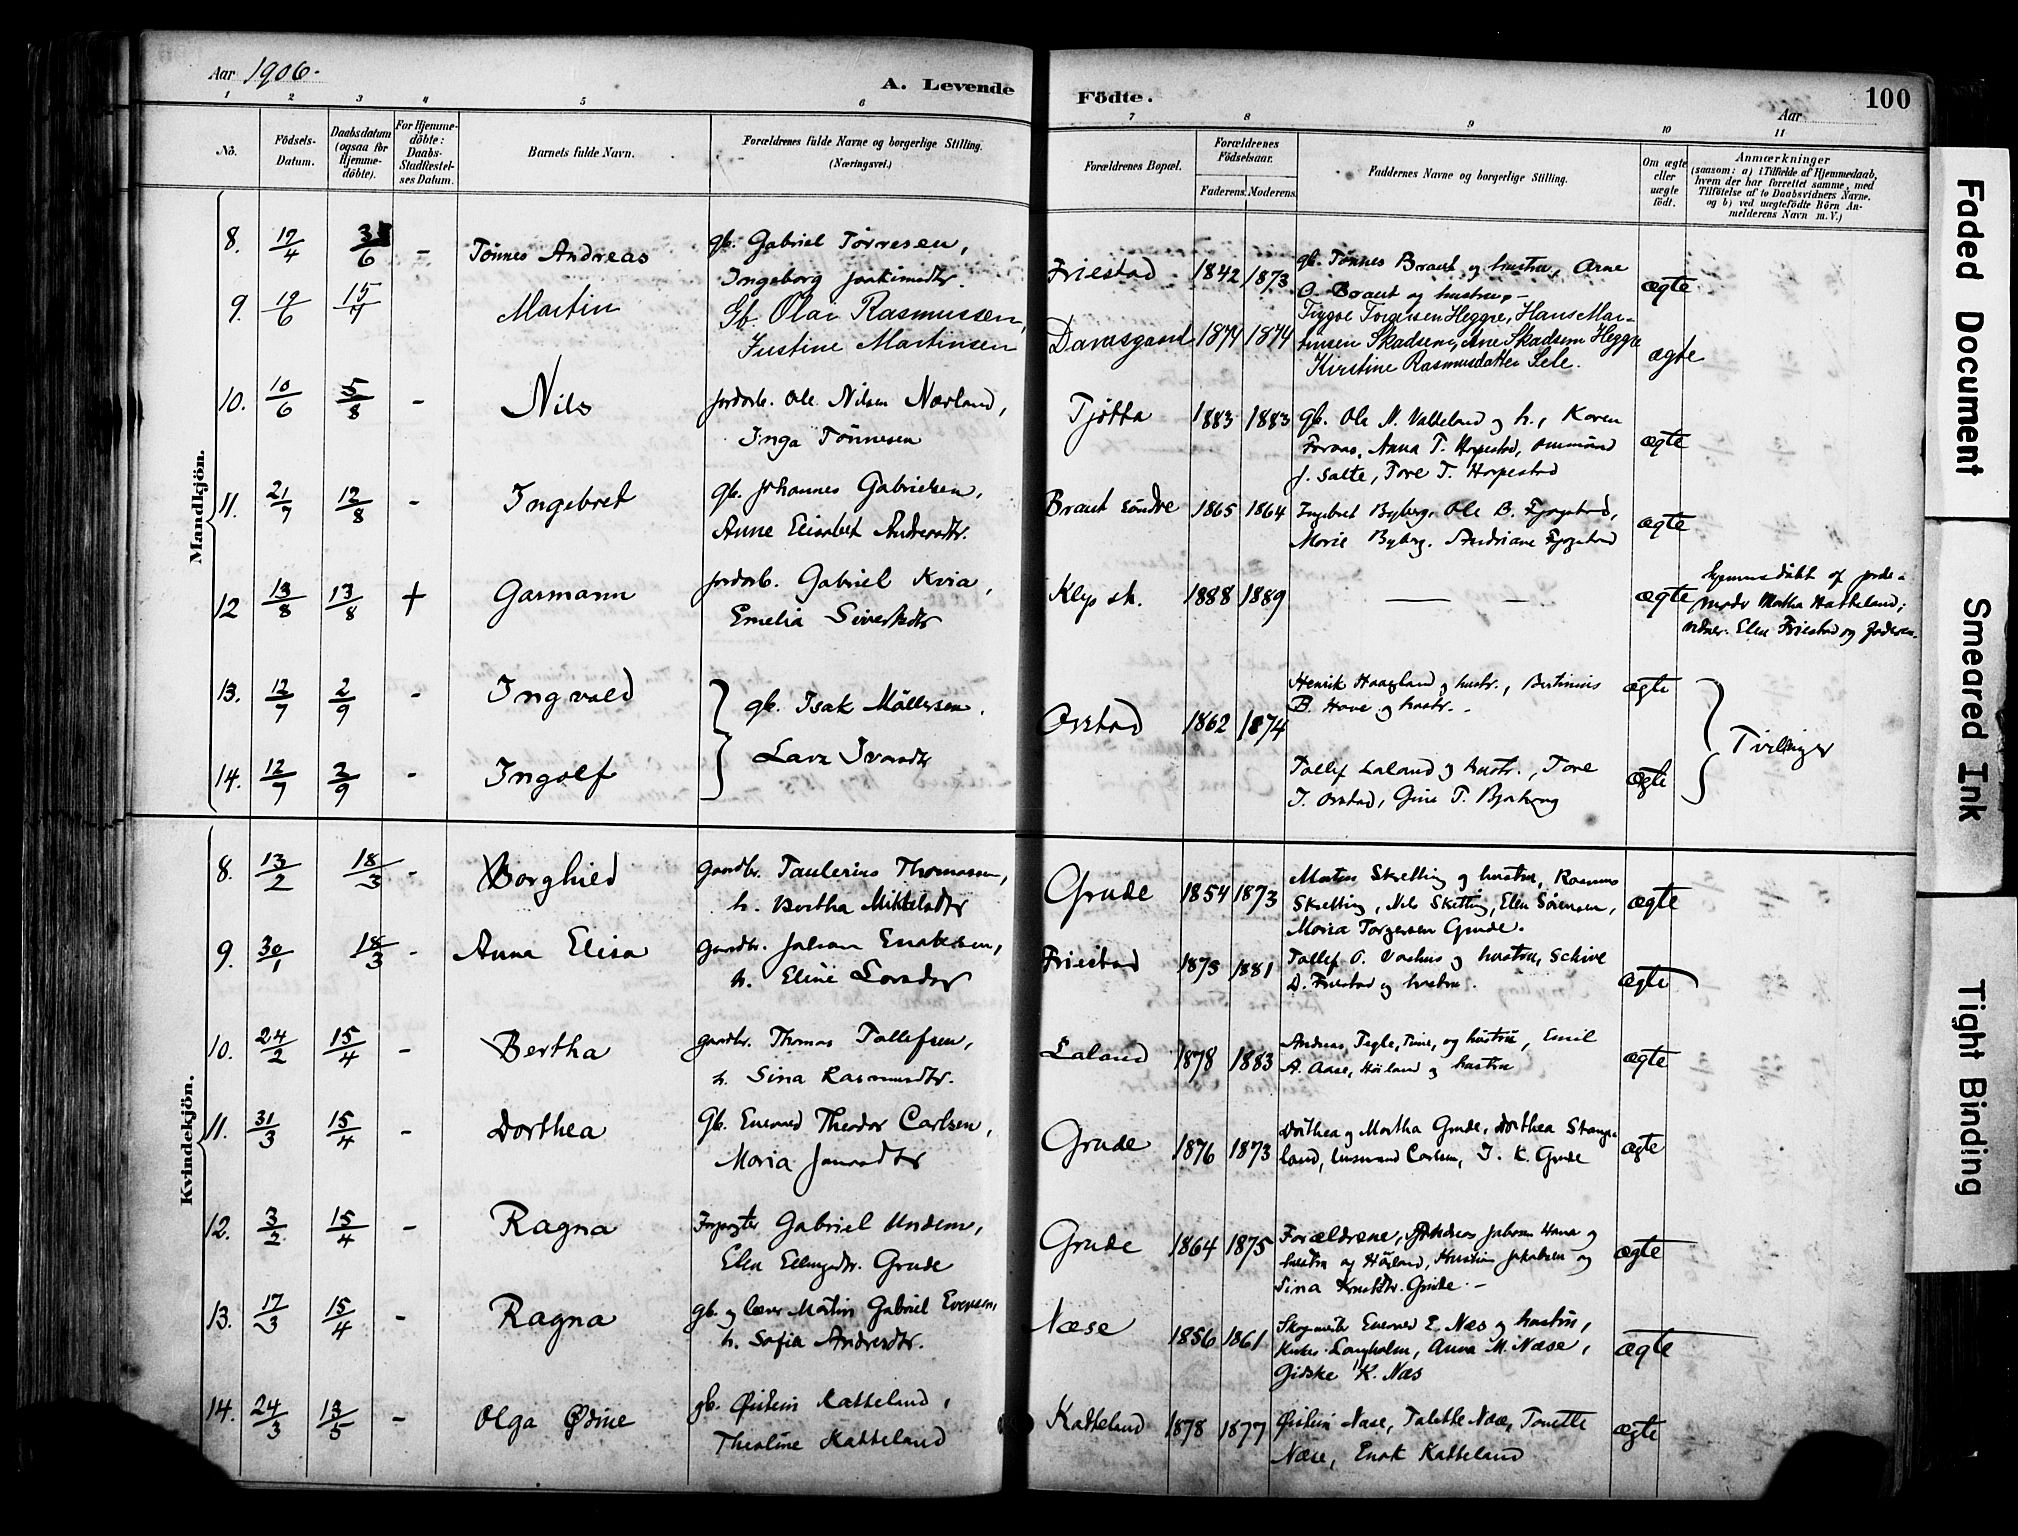 Aar 1906.
A. Levende Födte.
100
Aar
1 2 3 4 5 6 7 8 9 10 11
Nö.
Födsels-Datum.
Daabsdatum (ogsaa for Hjemmedöbte).
For Hjemmedöbte: Daabs-Stadfæstelses Datum.
Barnets fulde Navn.
Forældrenes fulde Navne og borgerlige Stilling. (Næringsvei.)
Forældrenes Bopæl.
Forældrenes Födselsaar.
Faderens. Moderens.
Faddernes Navne og borgerlige Stilling.
Om ægte eller uægte födt.
Anmærkninger
(saasom: a) i Tilfælde af Hjemmedaab, hvem der har forrettet samme, med Tilföielse af to Daabsvidners Navne, og b) ved uægtefödte Börn Anmelderens Navn m. V.)
Mandkjön.
8. 17/4 3/6 - Tönnes Andreas gb. Gabriel Törresen,
Ingeborg Joakimsdtr. Friestad 1842 1873 gb. Tönnes Braut og hustru, Arne
O. Braut og hustru. - ægte
9. 19/6 15/7 Martin Gb. Olai Rasmussen,
Justine Martinsen Damsgaard 1874 1874 Trygve Torgersen Heggre, Hans Martinsen Skadsem, Ane Skadsem Heggre
Kirstine Rasmusdatter Sele. ægte
10. 10/6 5/8 - Nils jordarb. Ole Nilsen Nærland,
Inga Tönnesen Tjötta 1883 1883 gb. Ole N. Vatteland og h., Karen
Anna T. Harpestad,
J. Salte, Tore T. Harpestad ægte
11. 21/7 12/8 - Ingebret gb. Johannes Gabrielsen,
Anne Elisabet Andersdtr. Braut söndre 1865 1864 Ingebret Byberg, Ole B.
Marie Byberg. Andriane ægte
12 13/8 13/8 + Garmann jordarb. Gabriel Kvia,
Emelia Sivertsdtr Klep st. 1888 1889 — — ægte hjemmedöbt af jordemoder Martha Hatteland;
vidner: Elen Friestad og faderen.
13. 12/7 2/9 - Ingvald gb. Isak Möllersen.
Orstad 1862 1874 Henrik Haagland og hustr., Bertinius
B. Haave og hustr. - ægte
14. 12/7 2/9 - Ingolf Lava Ivarsdtr
Tollef Laland og hustr., Tore
I. Orstad, Gine T. ægte Tvillinger
Kvindekjön.
8. 13/2 18/3 - Borghild gaardbr. Taulerius Thomassen,
h. Bertha Mikkelsdtr Grude 1854 1873 Morten Skretting og hustru, Rasmus
Skretting, Nils Skretting, Elen Sörensen,
Maria Torgersen Grude. ægte
9. 30/1 18/3 - Anna Elisa gaardbr. Johan Enoksen,
h. Eline Larsdtr Friestad 1875 1881 Tollef O. Vashus og hustru, Schive
D. Friestad og hustru. ægte
10. 24/2 15/4 - Bertha gaardbr. Thomas Tollefsen,
h. Sina Rasmusdtr. Laland 1878 1883 Andreas Tegle, Time, og hustru, Emil
A. Aase, Höiland og hustru ægte
11. 31/3 15/4 - Dorthea Gb. Enevald Theodor Carlsen,
Maria Jonasdtr Grude 1876 1873 Dorthea og Martha Grude, Dorthea Stangeland, Carlsen, I. K. Grude ægte
12. 3/2 15/4 - Ragna Gabriel Undem,
Elen Ellingsdtr. Grude Grude 1864 1875 Forældrene, Andreas Jakobsen og
hustru og Höiland, Jakobsen og
Sina Knutsdtr. Grude. - ægte
13. 17/3 15/4 - Ragna gb. og lærer Martin Gabriel Evensen,
h. Sofia Andersdtr. Næse 1856 1861 Skogmester Enevald E. Næs og hustru,
Langholm, Anna M. Næse,
Gidske K. Næs ægte
14. 24/3 13/5 - Olga Ödine gb. Öistein Katteland,
Theoline Katteland Katteland 1878 1877 Öistein Næse, Talette Næse, Tonette
Næse, Enok Katteland ægte
Faded Document
Smeared Ink
Tight Binding